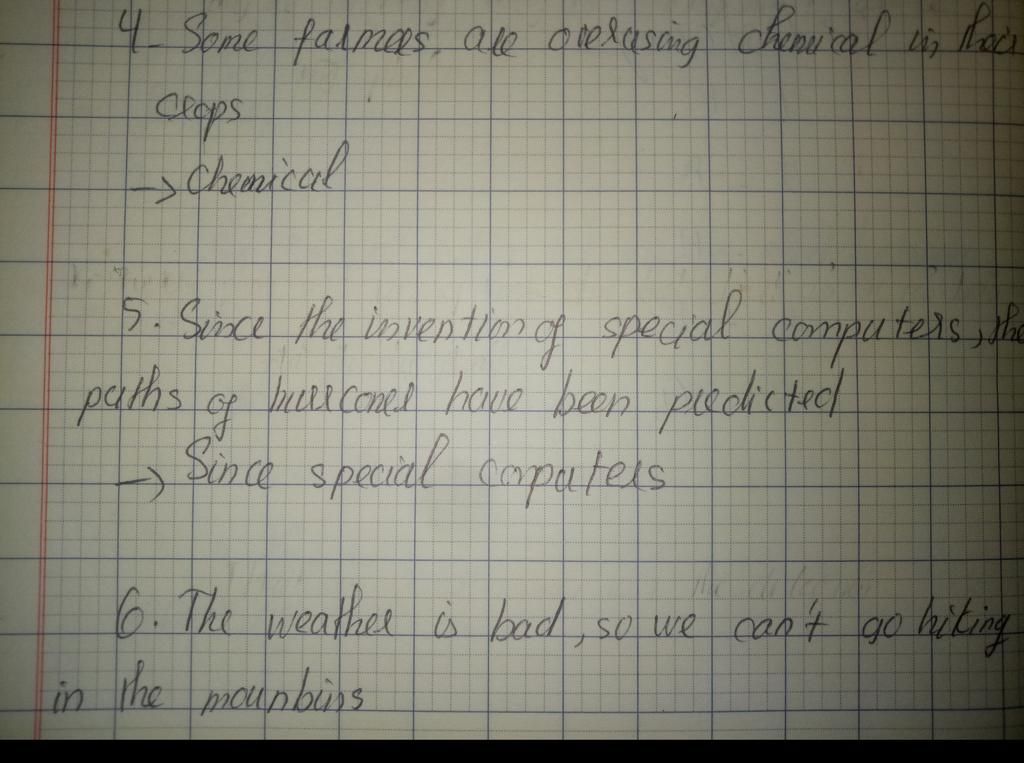 4- Some farmers are overusing chemical in their
crops
→ Chemical
5. Since the invention of special computers, the
paths of hurricanes have been predicted
→ Since special computers
6. The weather is bad, so we can't go hiking
in the mountains